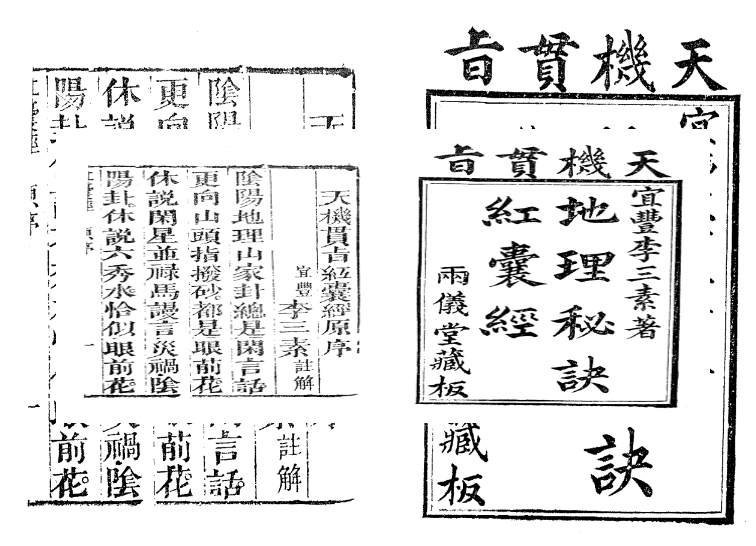 天機貫旨
宜
訣
藏板
天機貫旨
宜豐李三素著
地理秘訣
紅囊經
兩儀堂藏板
天機貫旨紅囊經原序
宜豐李三素註解
陰陽地理山家卦總是閑言話
更向山頭指撥砂都是眼前花
休説閑星並祿馬謾言災禍陰
陽卦休説六秀水恰似眼前花
原序
一
陰陽
更向
休説
陽卦
原序
註解
言話
前花
禍陰
前花
一